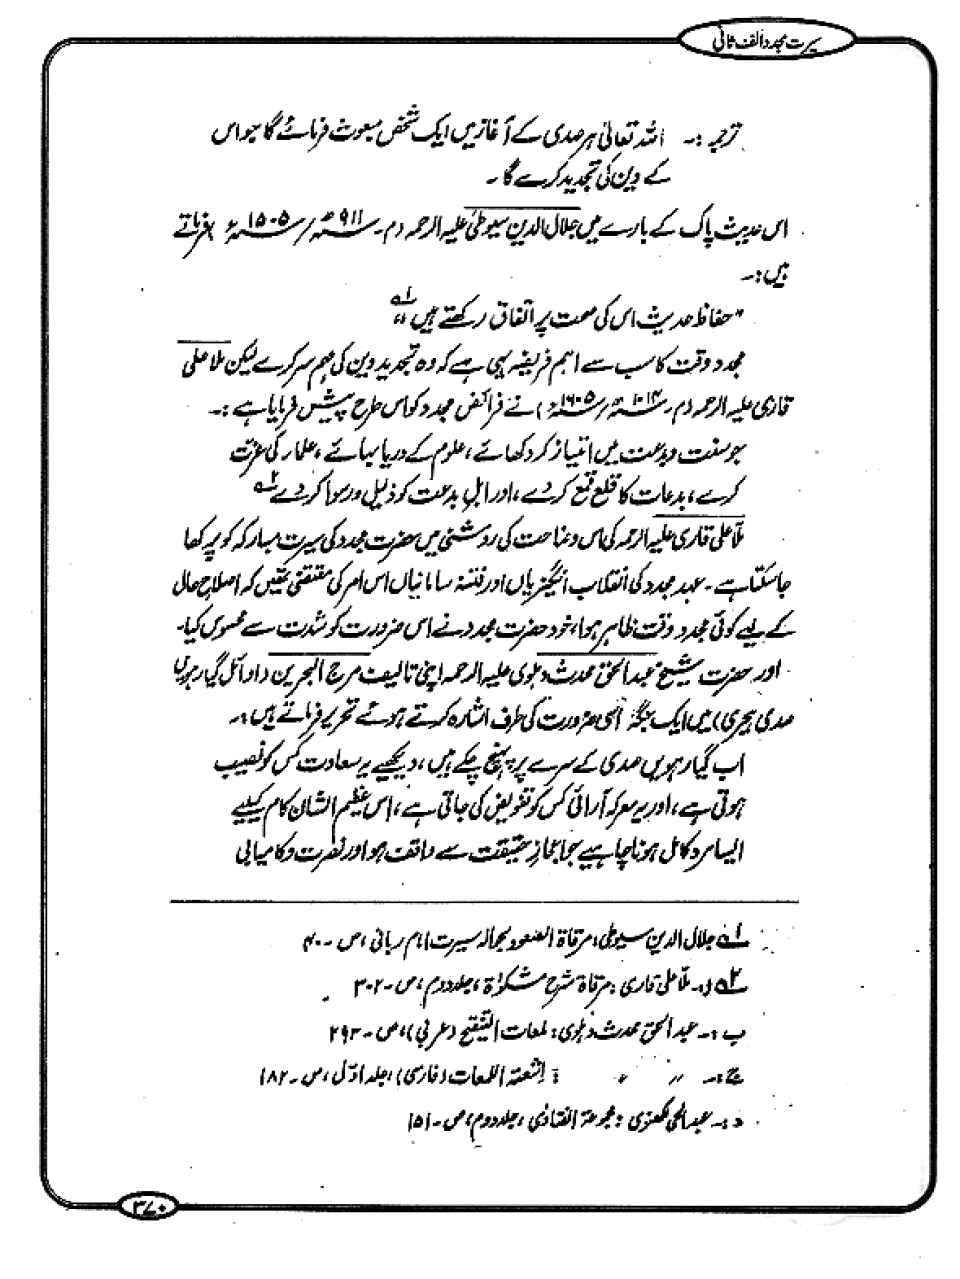 سیرت مجدد الف ثانی
ترجمہ :۔ اللہ تعالیٰ ہر صدی کے آغاز میں ایک شخص مبعوث فرمائے گا جو اس
کے دین کی تجدید کرے گا ۔
اس حدیث پاک کے بارے میں جلال الدین سیوطی علیہ الرحمہ (م۔ ۹۱۱ھ/ ۱۵۰۵ء) فرماتے
ہیں :۔
"حفاظ حدیث اس کی صحت پر اتفاق رکھتے ہیں" ۱ے
مجدد وقت کا سب سے اہم فریضہ یہی ہے کہ وہ تجدید دین کی مہم سر کرے لیکن ملا علی
قاری علیہ الرحمہ (م۔ ۱۰۱۴ھ/ ۱۶۰۵ء) نے فرائض مجدد کو اس طرح پیش فرمایا ہے :۔
جو سنت و بدعت میں امتیاز کر دکھائے، علوم کے دریا بہائے، علماء کی عزت
کرے، بدعات کا قلع قمع کر دے، اور اہل بدعت کو ذلیل و رسوا کر دے ۲ے
ملا علی قاری علیہ الرحمہ کی اس وضاحت کی روشنی میں حضرت مجدد کی سیرت مبارکہ کو پرکھا
جا سکتا ہے ۔ عہد مجدد کی انقلاب انگیزیاں اور فتنہ سامانیاں اس امر کی مقتضی تھیں کہ اصلاح حال
کے لیے کوئی مجدد وقت ظاہر ہوا، خود حضرت مجدد نے اس ضرورت کو شدت سے محسوس کیا۔
اور حضرت شیخ عبد الحق محدث دہلوی علیہ الرحمہ اپنی تالیف مرج البحرین (اوائل گیارہویں
صدی ہجری) میں ایک جگہ اسی ضرورت کی طرف اشارہ کرتے ہوئے تحریر فرماتے ہیں :۔
اب گیارہویں صدی کے سرے پر پہنچ چکے ہیں، دیکھیے یہ سعادت کس کو نصیب
ہوتی ہے، اور یہ معرکہ آرائی کس کو تفویض کی جاتی ہے، اس عظیم الشان کام کیلیے
ایسا مرد کامل ہونا چاہیے جو اعجاز حقیقت سے واقف ہو اور نصرت و کامیابی
۱ے جلال الدین سیوطی : مرقاۃ الصعود بحوالہ سیرت امام ربانی، ص۔ ۴۰
۲ے ا۔ ملا علی قاری : مرقاۃ شرح مشکوٰۃ، جلد دوم، ص۔ ۳۰۲
ب :۔ عبد الحق محدث دہلوی : لمعات التنقیح (عربی)، ص۔ ۲۹۳
ج :۔ " " : اشعتہ اللمعات (فارسی)، جلد اوّل، ص۔ ۱۸۲
د :۔ عبدالحی لکھنوی : مجموعۃ الفتاوی، جلد دوم، ص۔ ۱۵۱
۳۷۰